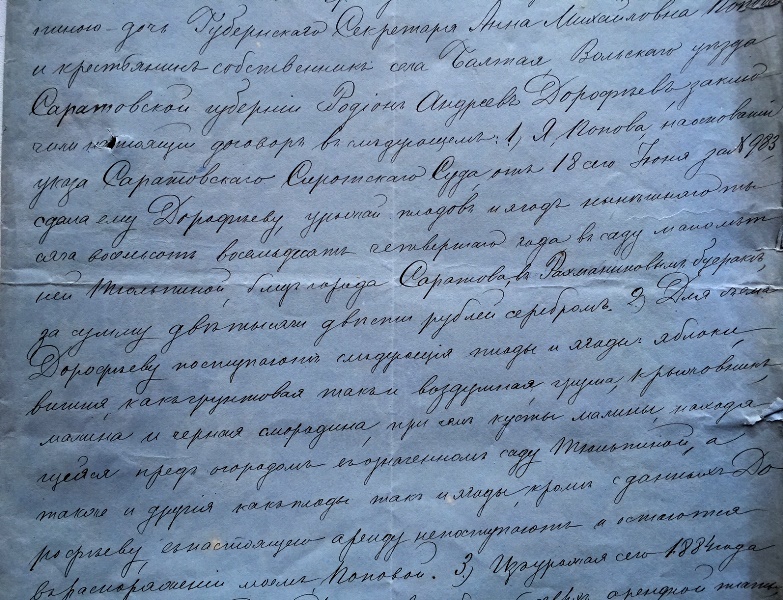 тиною дочь Губернскаго Секретаря Анна Михайловна
и крестьянинъ собственникъ села Балтая, Вольскаго уѣзда
Саратовской губерніи Родіонъ Андреевъ Дорофѣевъ заклю
чили настоящій договоръ въ слѣдующемъ: 1, Я, Попова, на основаніи
указа Саратовскаго Сиротскаго Суда, отъ 18 сего Іюня за № 983,
сдала ему Дорофѣеву, урожай плодовъ и ягодъ нынѣшняго ты
сяча восемьсотъ восемьдесятъ четвертаго года въ саду малолѣт
ней Тюльпиной, близъ города Саратова, въ Рахманиновомъ буеракѣ
за сумму двѣ тысячи двѣсти рублей серебромъ. 2, Для съема
Дорофѣеву поступаютъ слѣдующія плоды и ягоды: яблоки,
вишня, какъ грунтовая такъ и воздушная, груша, крыжовникъ
малина и черная смородина, при чемъ кусты малины, находя
щейся предъ огородомъ въ означенномъ саду Тюльпиной, а
также и другія какъ плоды такъ и ягоды, кромѣ сданныхъ До
рофѣеву, въ настоящую аренду не поступаютъ и остаются
въ распоряженіи моемъ, Поповой. 3, Изъ урожая сего 1884 года
арендной